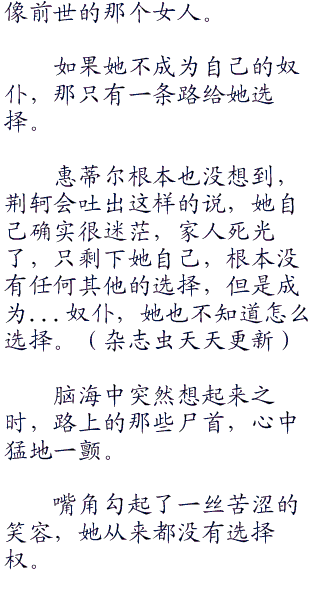 像前世的那个女人。
如果她不成为自己的奴
仆，那只有一条路给她选
择。
惠蒂尔根本也没想到，
荆轲会吐出这样的说，她自
己确实很迷茫，家人死光
了，只剩下她自己，根本没
有任何其他的选择，但是成
为...奴仆，她也不知道怎么
选择。（杂志虫天天更新）
脑海中突然想起来之
时，路上的那些尸首，心中
猛地一颤。
嘴角勾起了一丝苦涩的
笑容，她从来都没有选择
权。